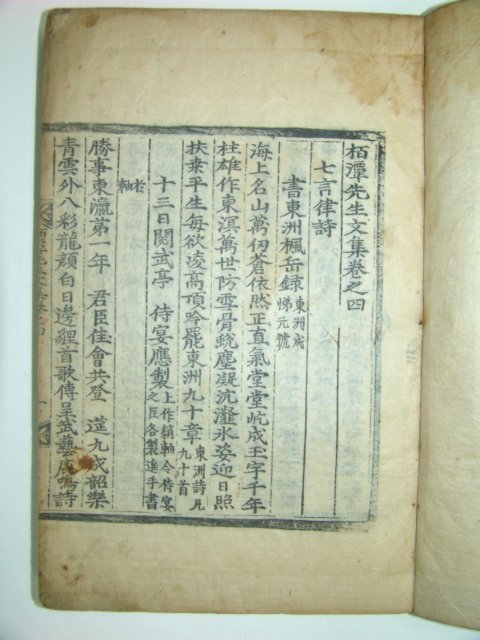 栢潭先生文集卷之四
七言律詩
書東洲楓岳錄 東洲成悌元號
海上名山萬仞蒼依然正直氣堂堂屹成玉宇千年
柱雄作東溟萬世防雪骨銳塵凝沆瀣氷姿迎日照
扶桑平生每欲凌高頂吟罷東洲九十章 東洲詩凡九十首
十三日閱武亭 侍宴應製 上作絹軸令侍宴之臣各製進手書
軸
勝事東瀛第一年 君臣佳會共登 筵九成韶樂
靑雲外八彩龍顏白日邊貍首歌傳呈武藝鹿鳴詩